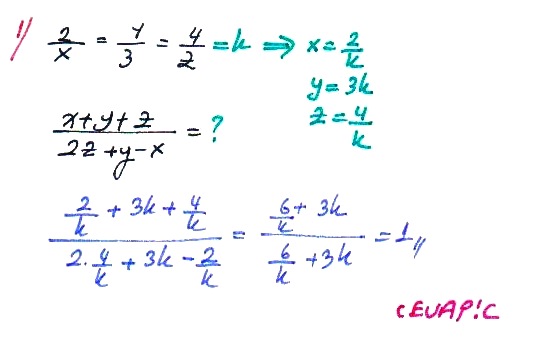 1) 2/x = y/3 = 4/z = k ⇒ x = 2/k
y = 3k
z = 4/k
(x+y+z)/(2z+y-x) = ?
(2/k + 3k + 4/k)/(2·4/k + 3k - 2/k) = (6/k + 3k)/(6/k + 3k) = 1,,
CEVAP:C